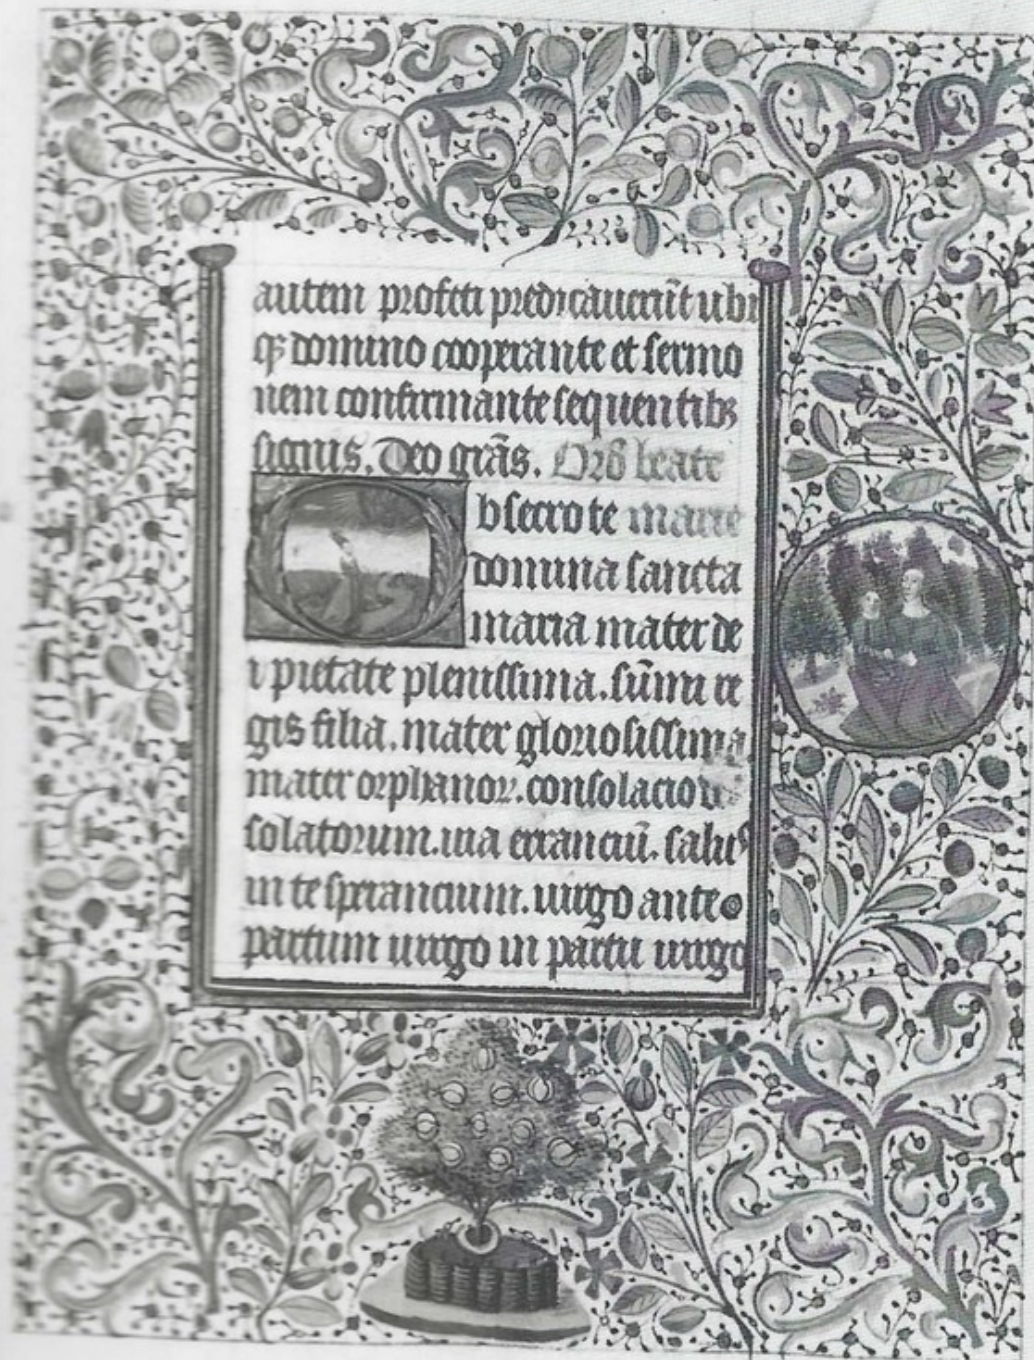 autem profeti predicauerūt ubi
qꝫ domino cooperante et sermo
nem confirmante sequentibꝫ
signis. Deo grās. Orō beate
Obsecro te marie
domina sancta
maria mater de
i pietate plenissima. sūmi re
gis filia. mater gloriosissima
mater orphanoꝝ. consolacio
solatorum. uia erranciū. salus
in te sperancium. uirgo ante
partum uirgo in partu uirgo